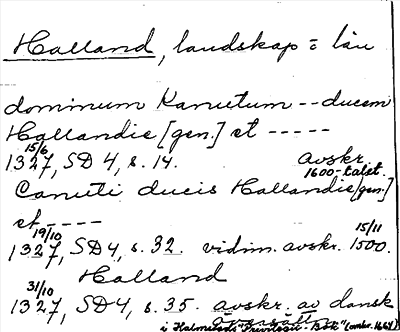 Halland, landskap = län
dominum Kanutum -- ducem
Hallandie [gen.] et -----
15/6
1327, SD 4, s. 14. avskr.
1600-talet.
Canuti ducis Hallandie [gen.]
et ----
19/10 15/11
1327, SD 4, s. 32. vidim. avskr. 1500.
Halland
31/10
1327, SD 4, s. 35. avskr. av dansk
i Halmstads "Privilegie-Bok" (omkr. 1661)